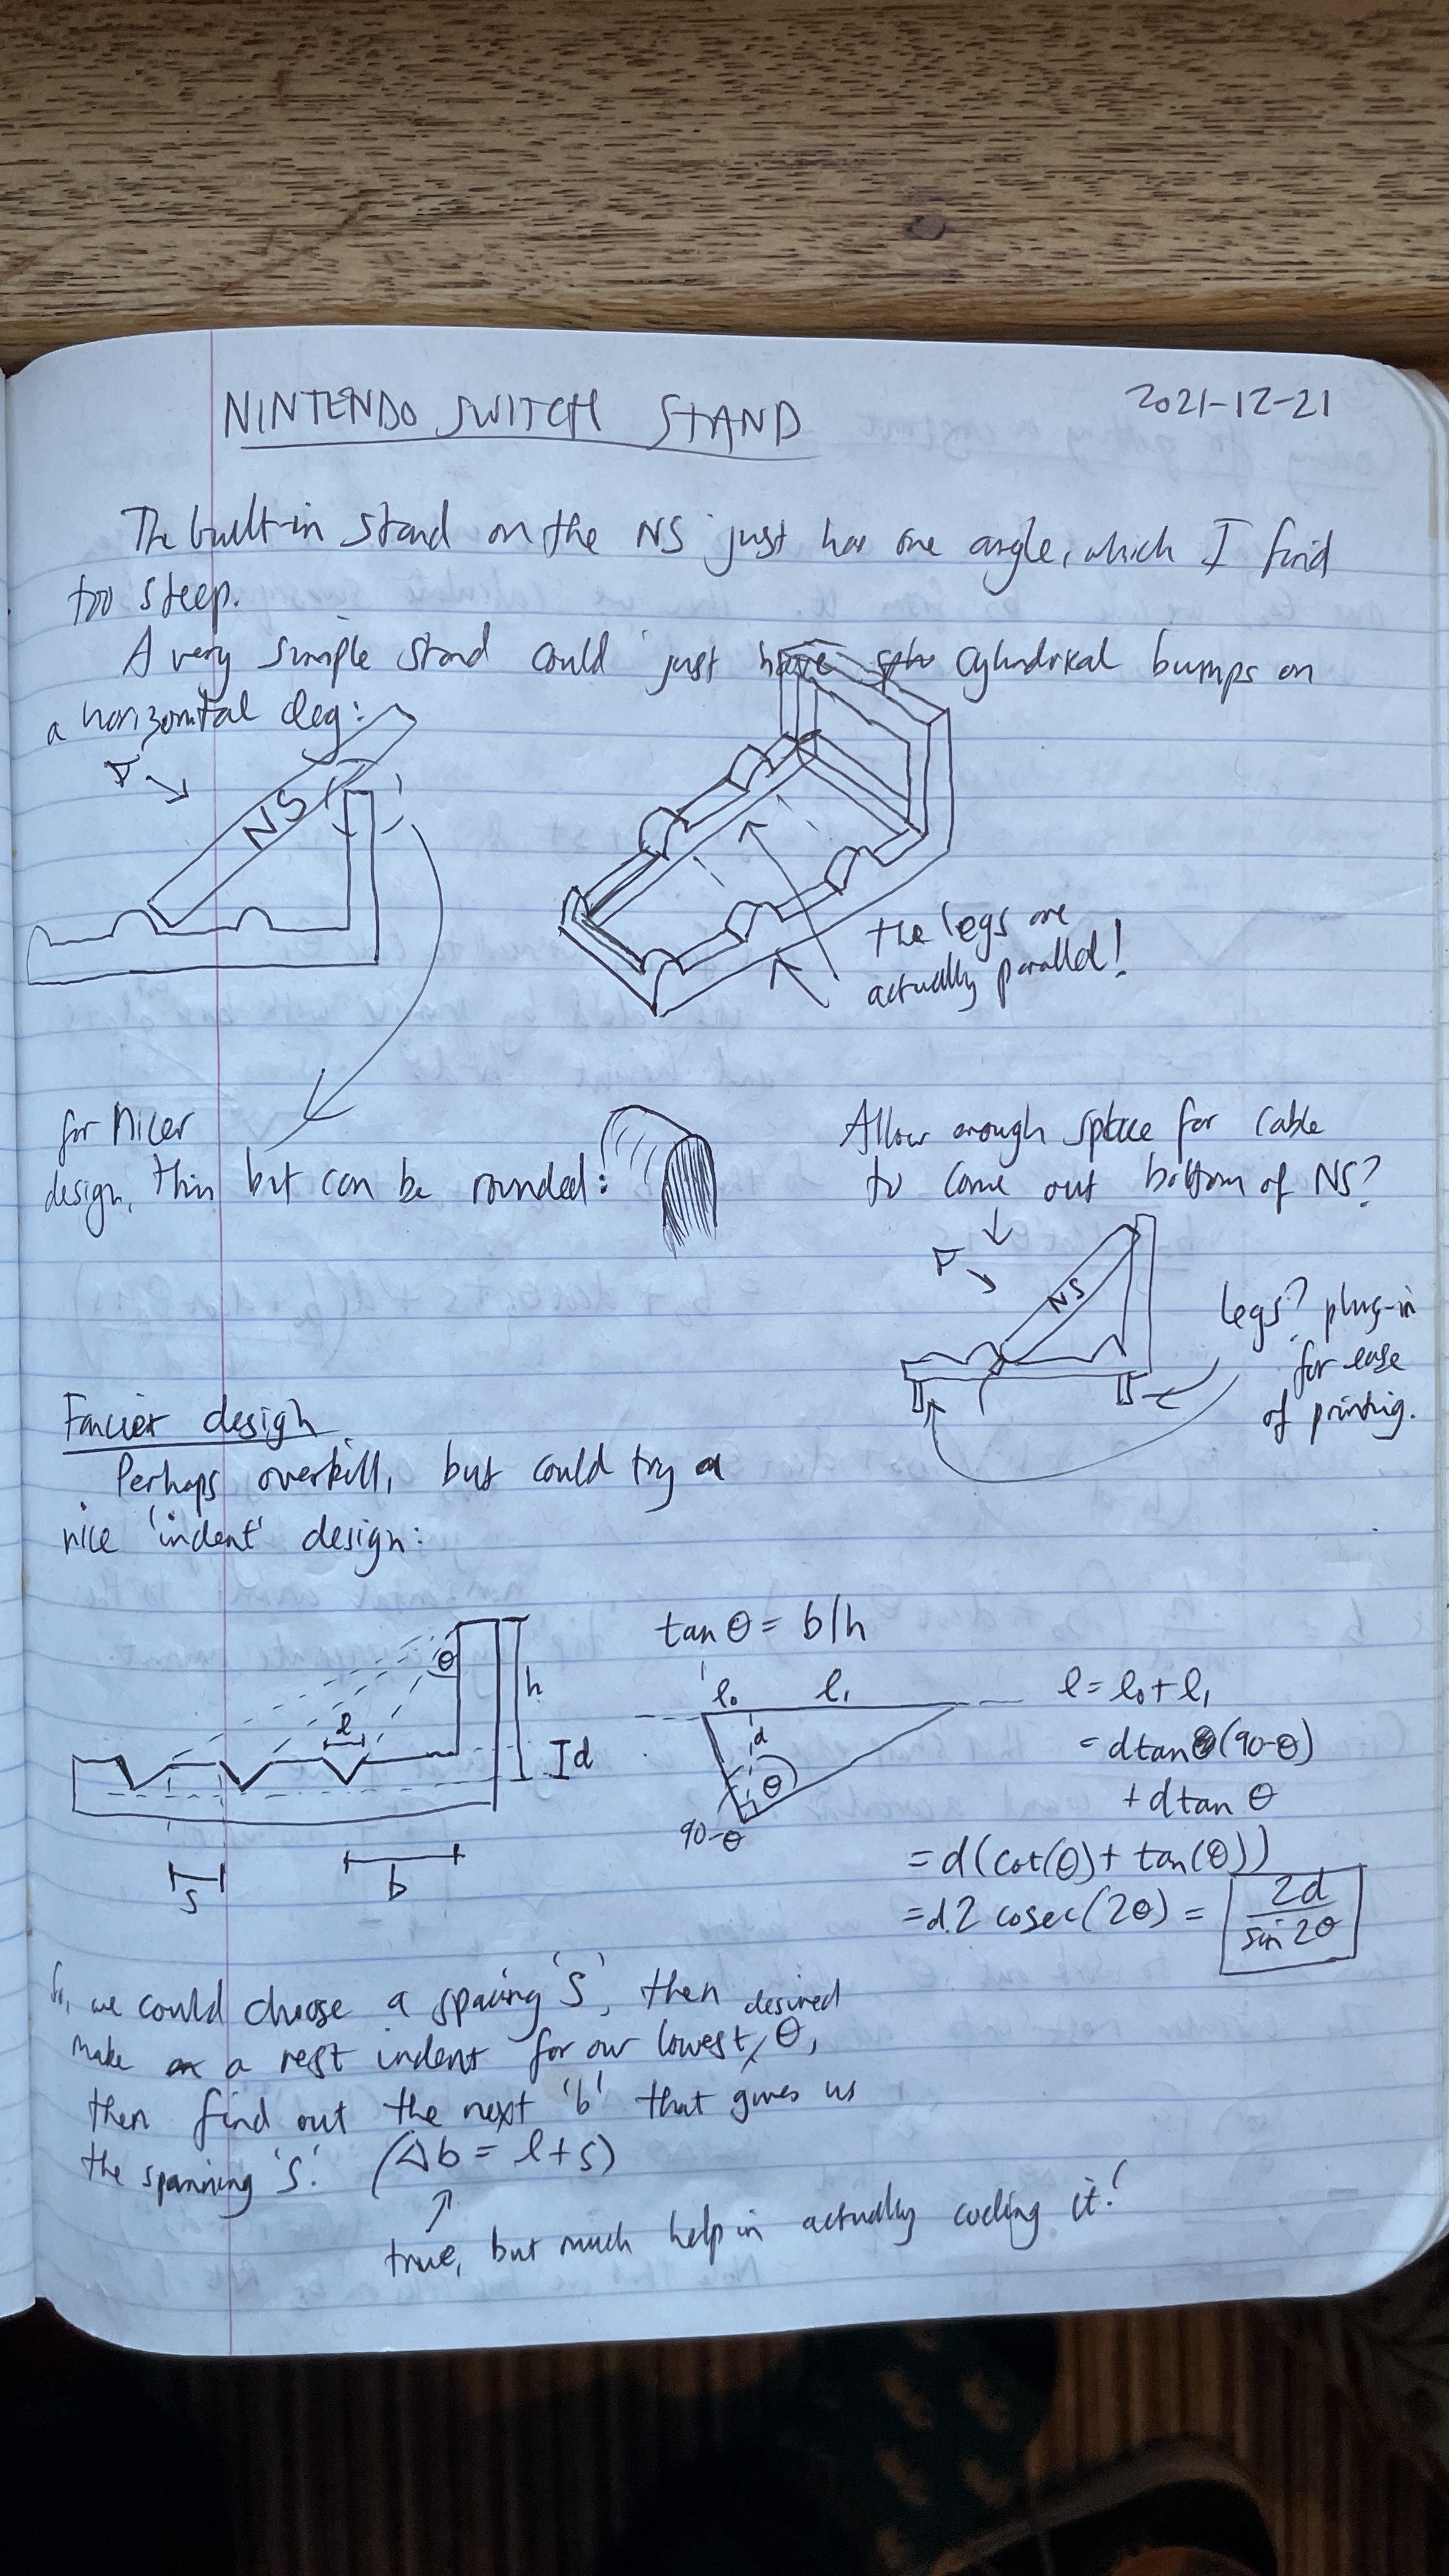 NINTENDO SWITCH STAND
2021-12-21
The built-in stand on the NS just has one angle, which I find
too steep.
A very simple stand could just have cylindrical bumps on
a horizontal leg:
NS
the legs are
actually parallel!
for nicer
design, thin but can be rounded:
Allow enough space for cable
to come out bottom of NS?
NS
legs? plug-in
for ease
of printing.
Fancier design
Perhaps overkill, but could try a
nice 'indent' design:
θ
h
l
d
s
b
tan θ = b/h
l₀ l₁
d
θ
90-θ
l = l₀ + l₁
= d tan (90-θ)
+ d tan θ
= d(cot(θ) + tan(θ))
= d.2 cosec(2θ) = 2d / sin 2θ
So, we could choose a spacing 's', then
make a rest indent for our lowest desired θ,
then find out the next 'b' that gives us
the spanning 's'. (Δb = l + s)
true, but much help in actually coding it!